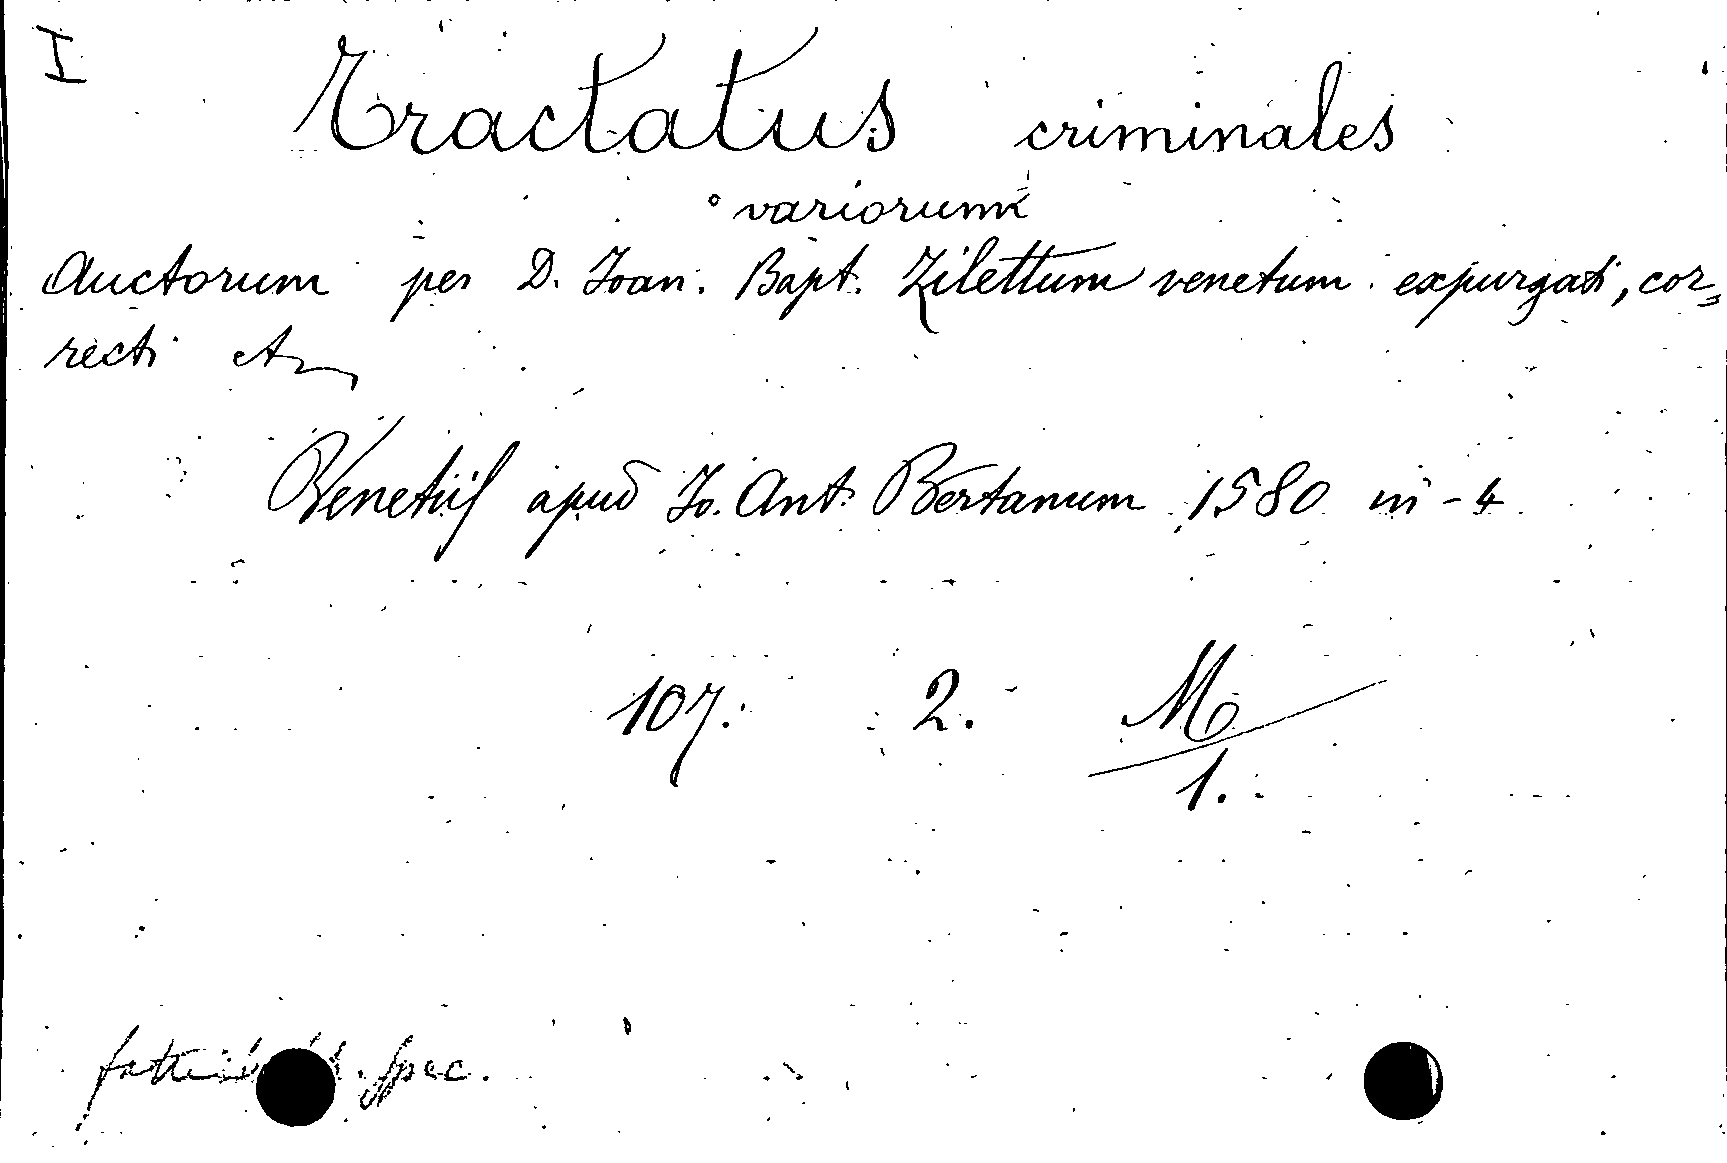 I
Tractatus criminales
variorum
Auctorum per D. Joan. Bapt. Zilettum venetum expurgati, cor=
recti et
Venetiis apud Jo. Ant. Bertanum 1580 in-4
107. 2. M
1.
spec.